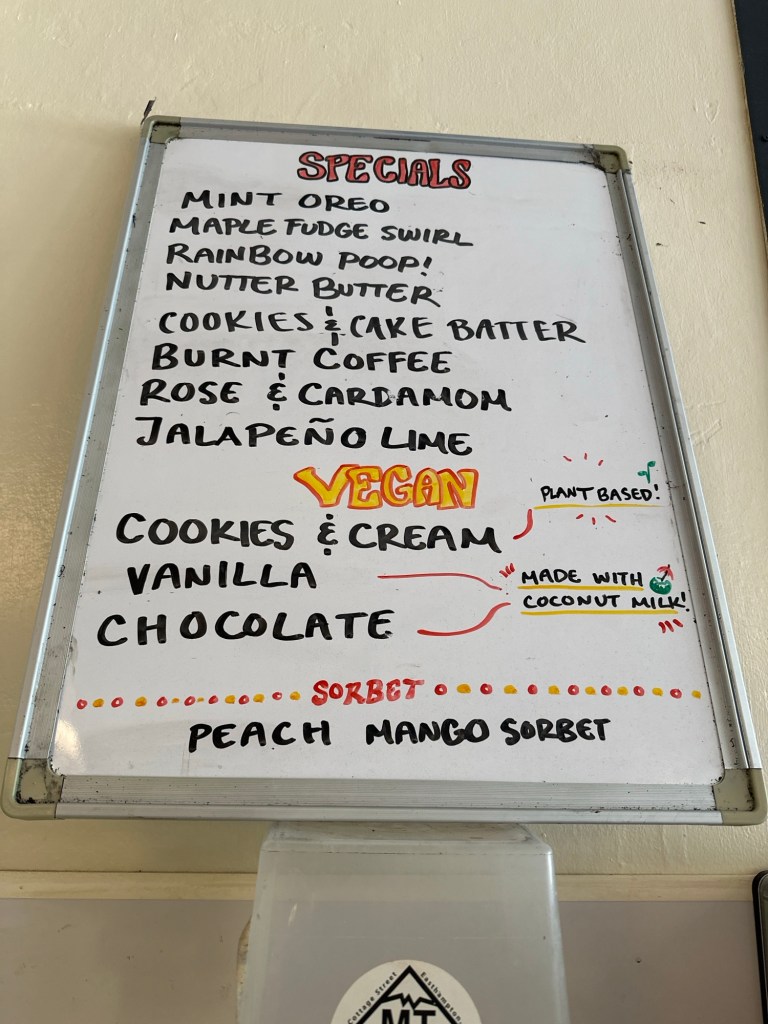 SPECIALS
MINT OREO
MAPLE FUDGE SWIRL
RAINBOW POOP!
NUTTER BUTTER
COOKIES & CAKE BATTER
BURNT COFFEE
ROSE & CARDAMOM
JALAPEÑO LIME
VEGAN
PLANT BASED!
COOKIES & CREAM
VANILLA
MADE WITH
COCONUT MILK!
CHOCOLATE
SORBET
PEACH MANGO SORBET
Cottage Street
Easthampton,
MT